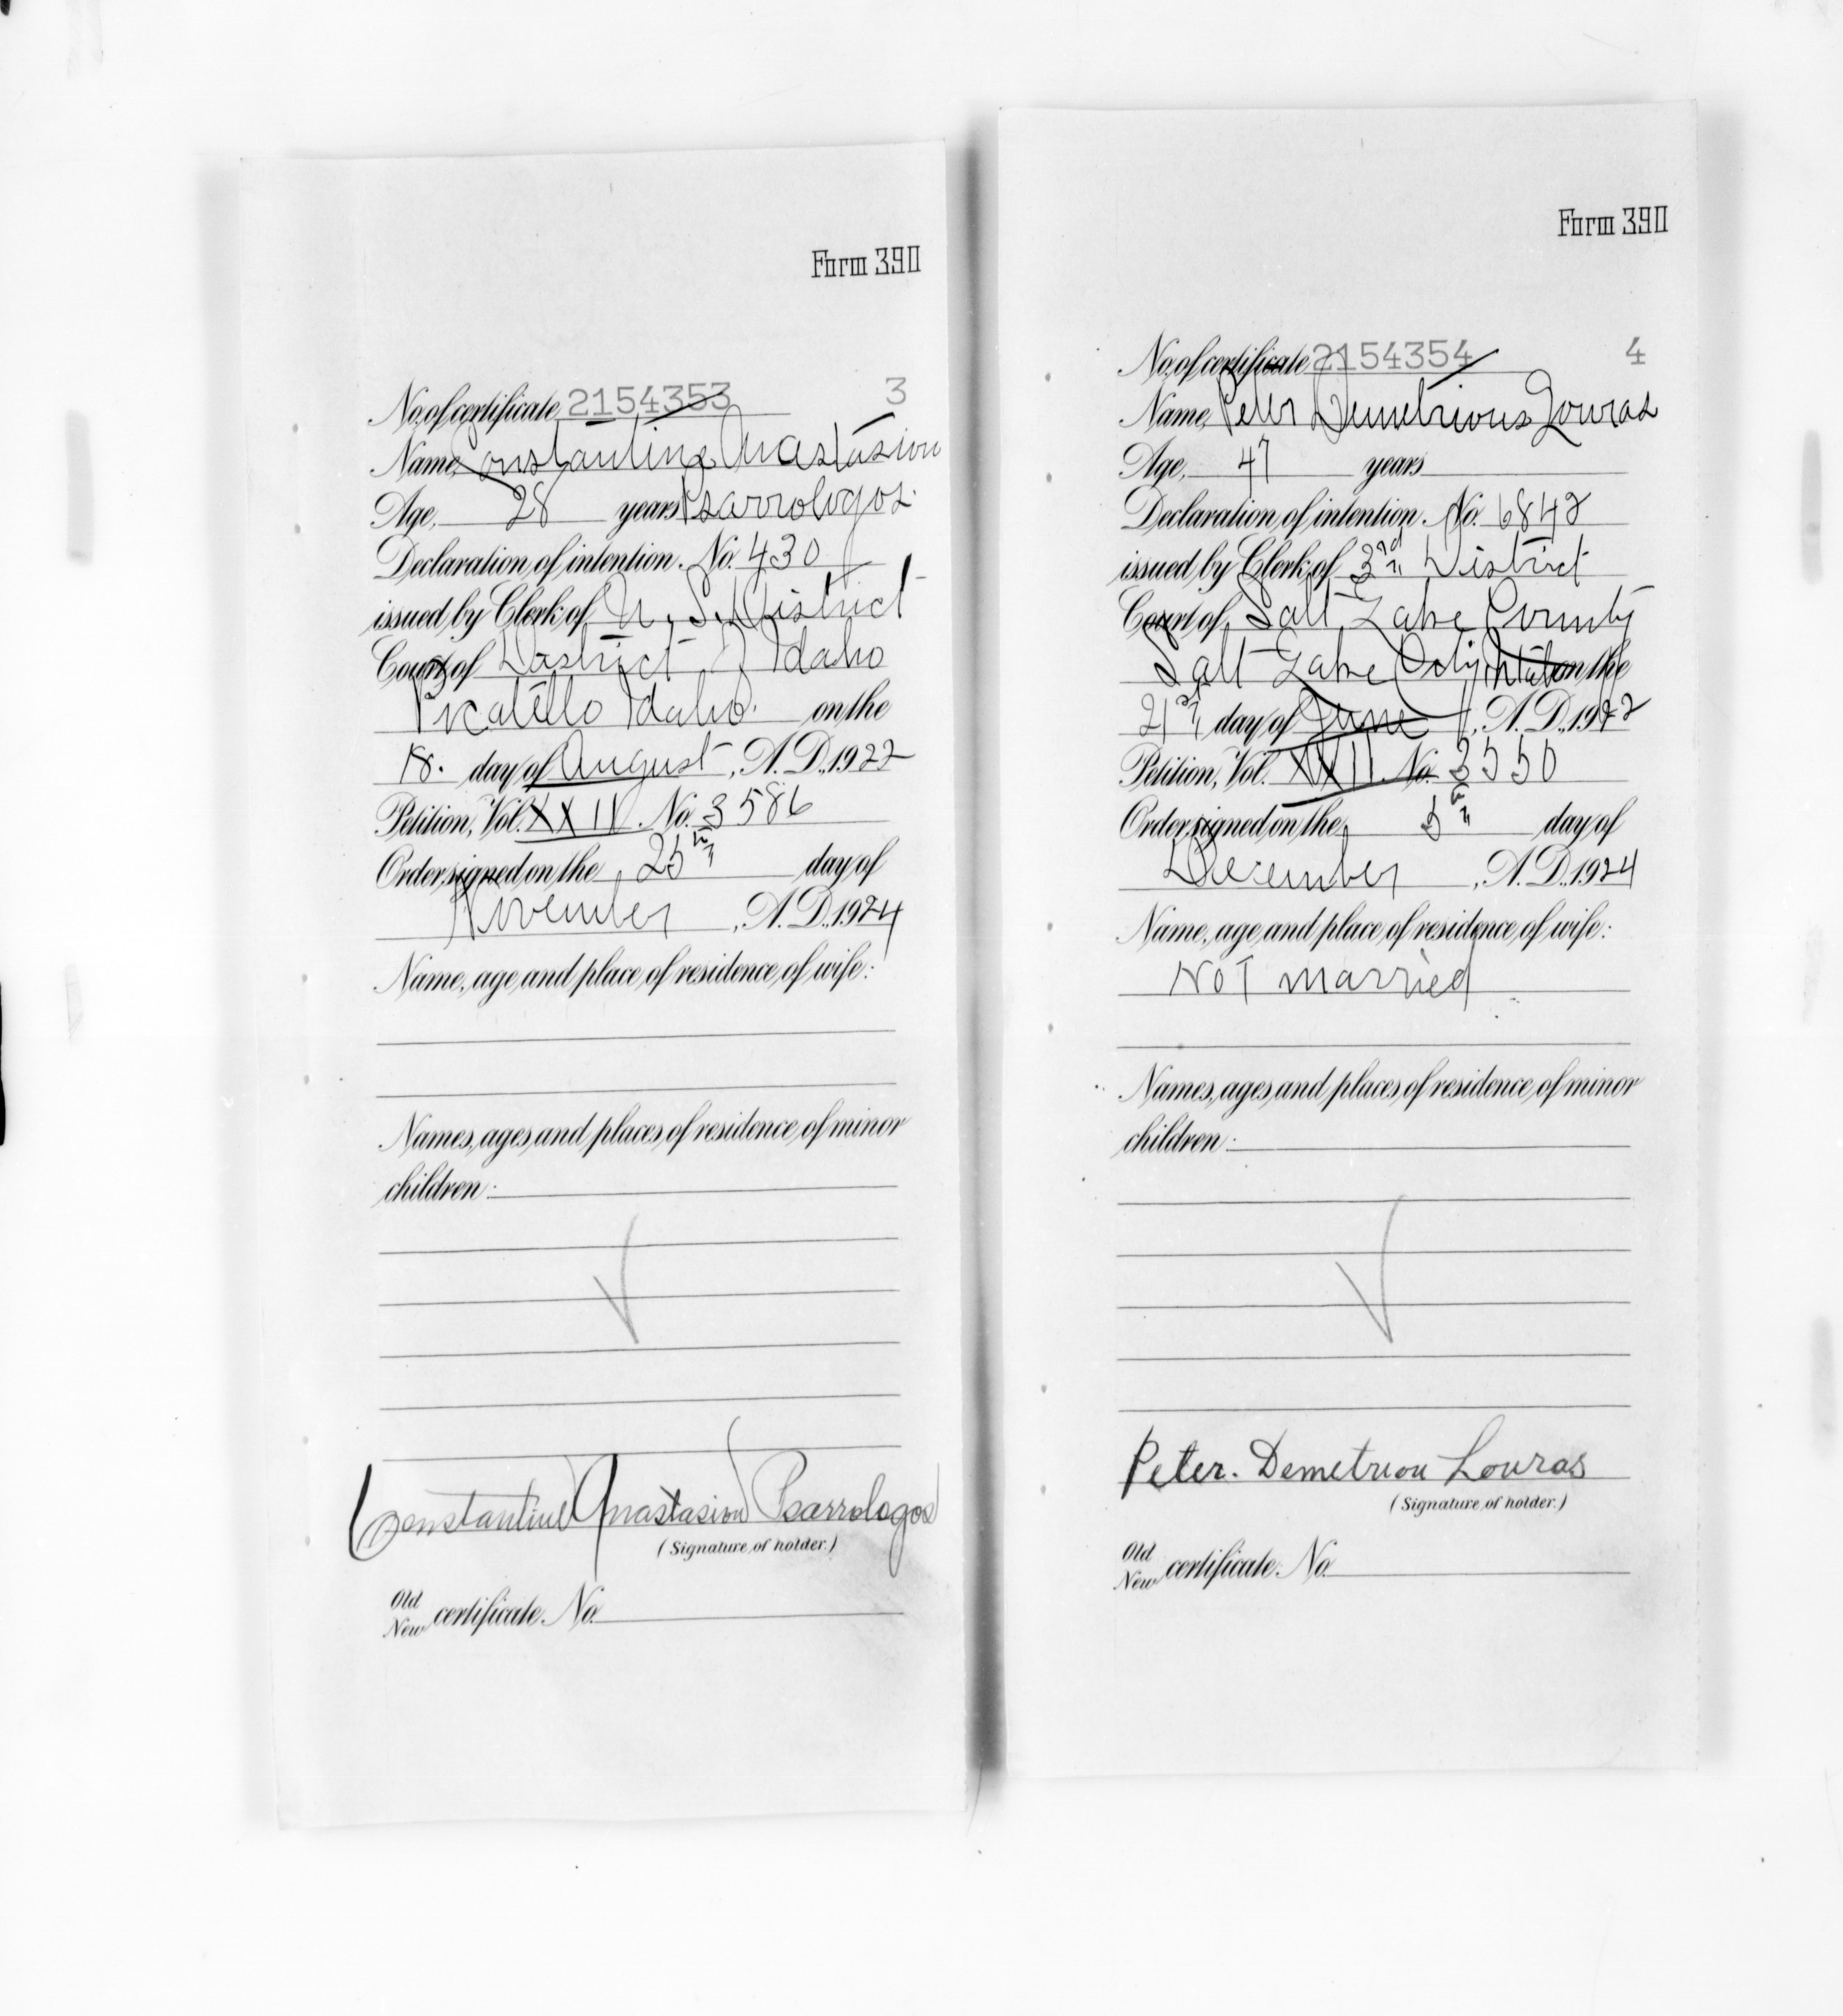 Form 390
No. of certificate 2154353 3
Name, Constantine Anastasion
Age, 28 years Psarrologos.
Declaration of intention No. 430
issued by Clerk of U. S. District
Court of District of Idaho
Pocatello Idaho. on the
18. day of August, A. D., 1922
Petition, Vol. XXIV. No. 3586
Order signed on the 25th day of
November, A. D., 1924
Name, age and place of residence of wife:
Names, ages and places of residence of minor
children:
Constantine Anastasion Psarrologos
(Signature of holder.)
Old
New certificate No.
Form 390
No. of certificate 2154354 4
Name, Peter Demetrious Louras
Age, 47 years
Declaration of intention No. 6842
issued by Clerk of 3rd District
Court of Salt Lake County
Salt Lake City Utah on the
21st day of June, A. D., 1922
Petition, Vol. XXII No. 3550
Order signed on the 5th day of
December, A. D., 1924
Name, age and place of residence of wife:
NOT married
Names, ages and places of residence of minor
children:
Peter. Demetriou Louras
(Signature of holder.)
Old
New certificate No.